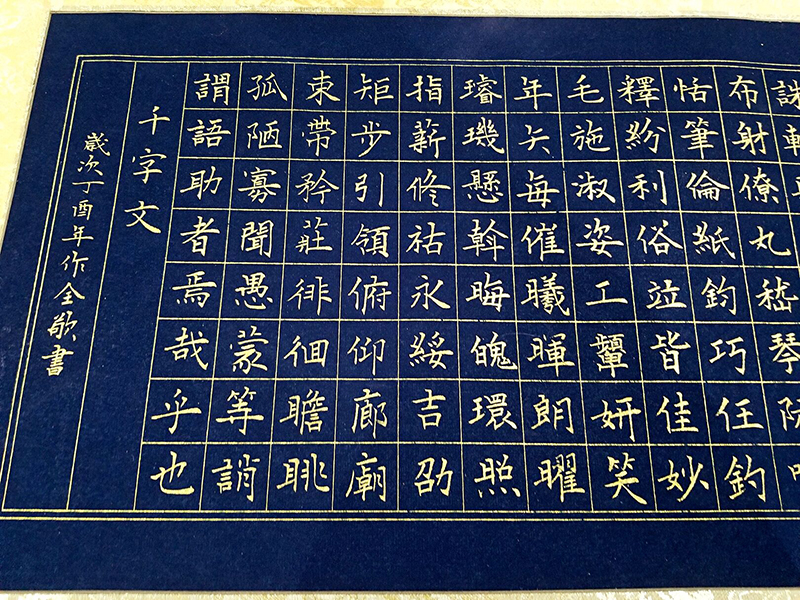 誅
布射僚丸嵇琴阮
恬筆倫紙鈞巧任釣
釋紛利俗竝皆佳妙
毛施淑姿工顰妍笑
年矢每催曦暉朗曜
璿璣懸斡晦魄環照
指薪修祜永綏吉劭
矩步引領俯仰廊廟
束帶矜莊徘徊瞻眺
孤陋寡聞愚蒙等誚
謂語助者焉哉乎也
千字文
歲次丁酉年作全書